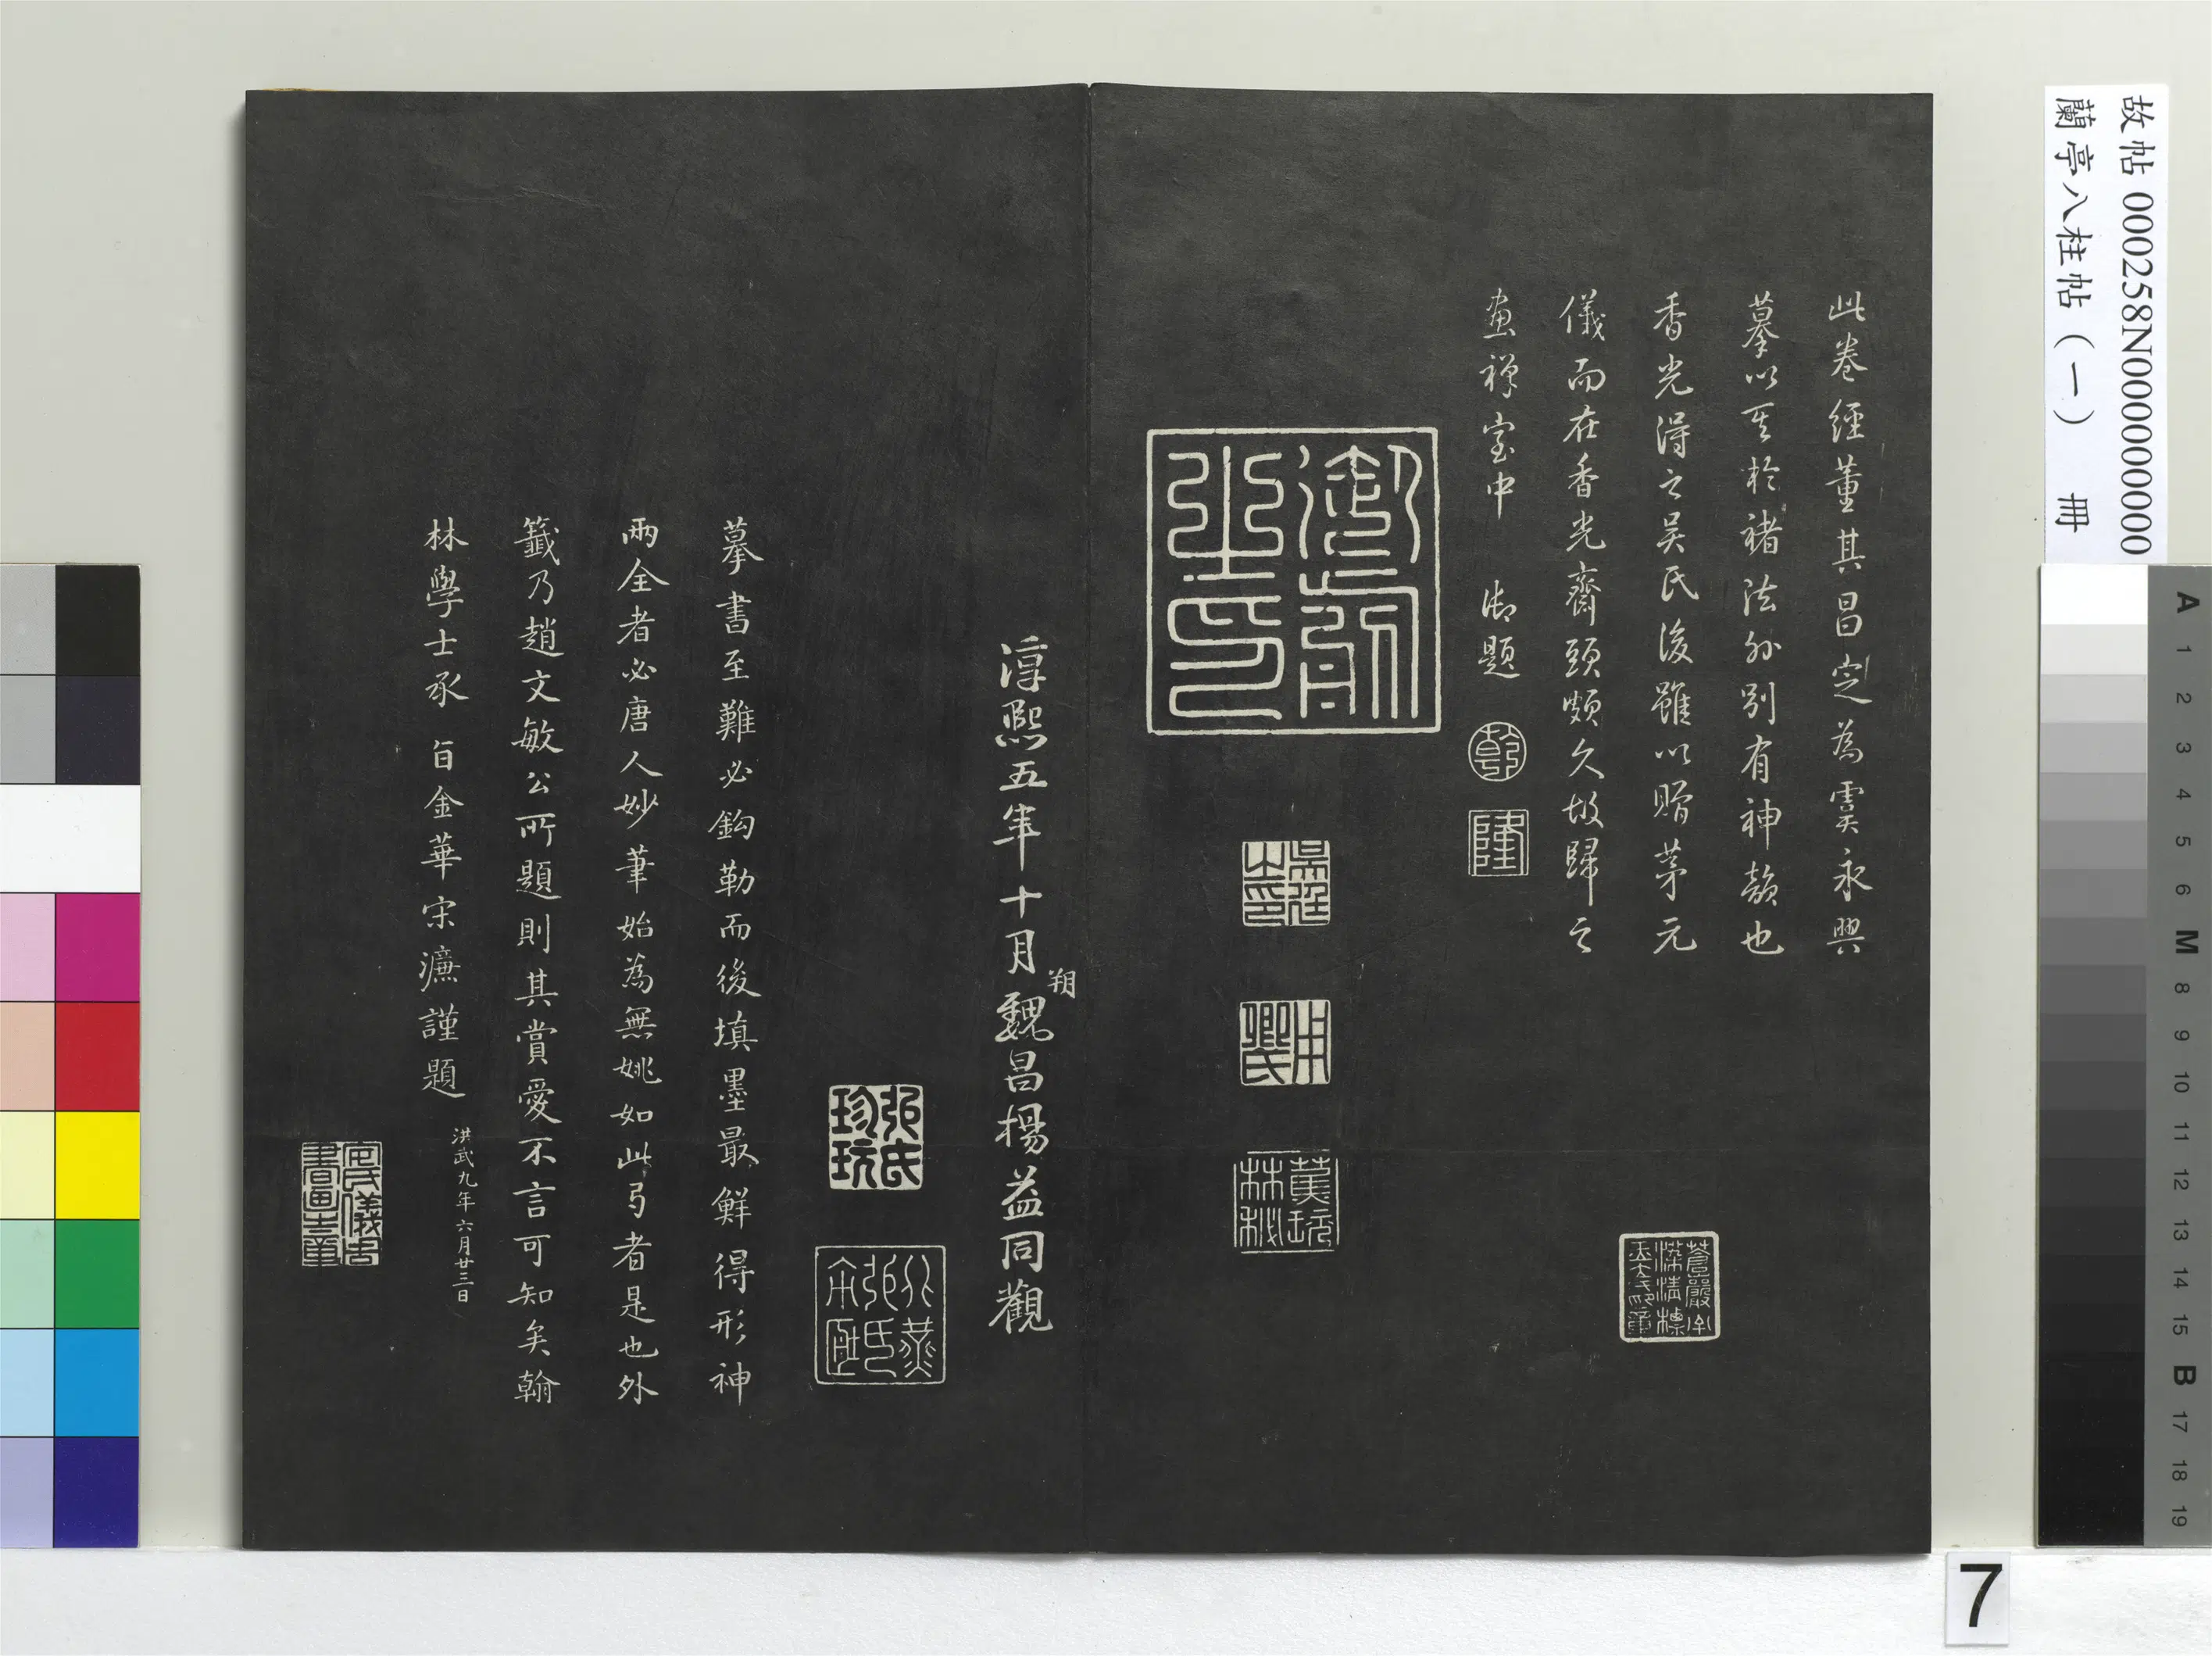 故帖 000258N000000000
蘭亭八柱帖（一） 冊
此卷經董其昌定為虞永興
摹以其於褚法外別有神韻也
香光得之吳氏後雖以贈茅元
儀而在香光齋頭頗久故歸之
畫禪室中 御題
乾
隆
蒼巖子
梁清標
玉立氏印章
淳熙五年十月朔魏昌楊益同觀
張氏
珍玩
北燕
張氏
摹書至難必鈎勒而後填墨最鮮得形神
兩全者必唐人妙筆始為無姚如此弓者是也外
籤乃趙文敏公所題則其賞愛不言可知矣翰
林學士承 旨金華宋濂謹題
洪武九年六月廿三日
A 1 2 3 4 5 6 M 8 9 10 11 12 13 14 15 B 17 18 19
7